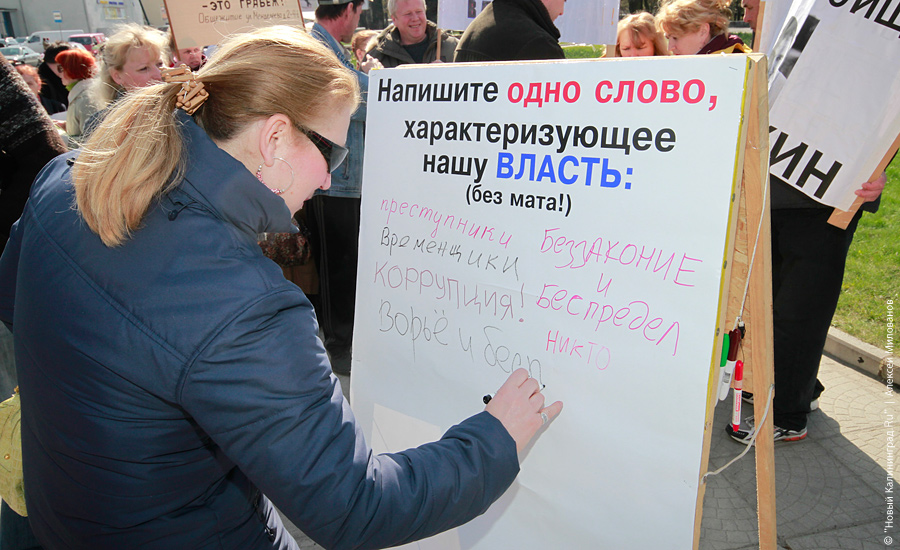 -ЭТО ГРАБЁЖ!
Напишите одно слово,
характеризующее
нашу ВЛАСТЬ:
(без мата!)
преступники
Временщики
коррупция!
Ворьё и бесп
Беззаконие
и
Беспредел
никто
КИН
© "Новый Калининград.Ru" | Алексей Милованов